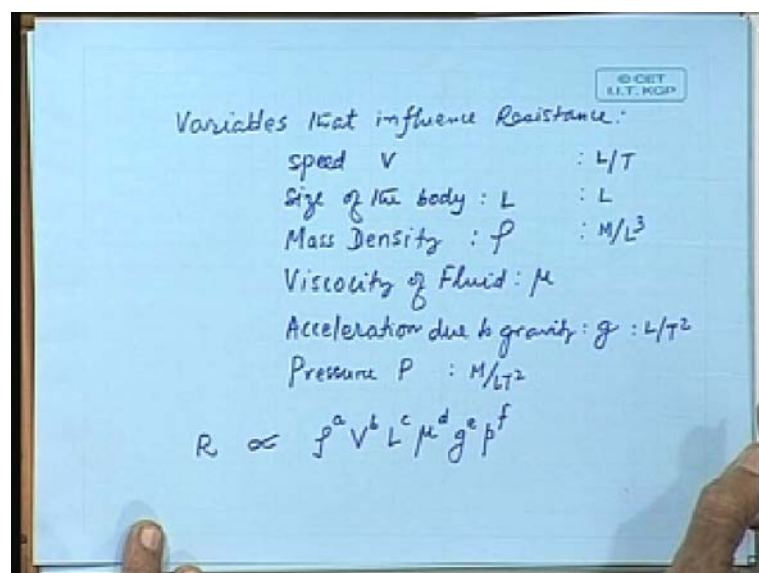 © CET
I.I.T. KGP
Variables that influence Resistance:
speed V : L/T
Size of the body : L : L
Mass Density : ρ : M/L³
Viscocity of Fluid : μ
Acceleration due to gravity : g : L/T²
Pressure P : M/LT²
R ∝ ρᵃ Vᵇ Lᶜ μᵈ gᵉ pᶠ